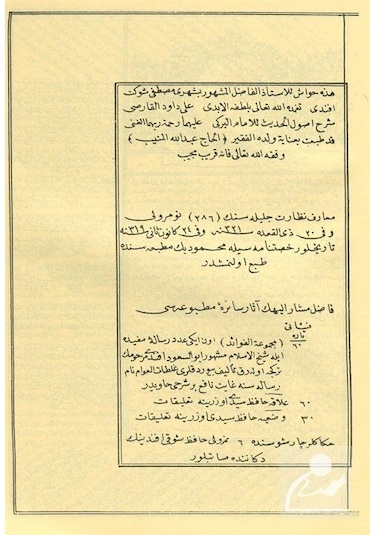 هذه حواش للاستاذ الفاضل المشهور بشهری مصطفی شوكت
افندی تغمده الله تعالی بلطفه الابدی علی داود القارصی
شرح اصول الحديث للامام البركی عليهما رحمة ربهما الغنی
قد طبعت بعناية ولده الفقير ( الحاج عبدالله المنيب )
وفقه الله تعالی فانه قريب مجيب
معارف نظارت جليله سنك (٢٨٦) نومرولی
و فی ٢٠ ذی القعده سنه ٣٢١ و فی ٢٤ كانون ثانی سنه ٣١٩
تاريخلو رخصتنامه سيله محمود بك مطبعه سنده
طبع اولنمشدر
فاضل مشار اليهك آثار سائرهٔ مطبوعه سی
فيئاتی
پاره
٦٠ (مجموعة الفوائد) اون ايكی عدد رسالهٔ مفيده
ايله شيخ الاسلام مشهور ابوالسعود افندی مرحومك
تركجه اوله رق تأليف بيوردقلری غلطات العوام نام
رساله سنه غايت نافع بر شرحی حاويدر
٦٠ علاقه حافظ سيدی اوزرينه تعليقات
٣٠ وضعيه حافظ سيدی اوزرينه تعليقات
حكاكلر چارشوسنده ٦ نمرولی حافظ شوقی افندينك
دكاننده صاتيلور